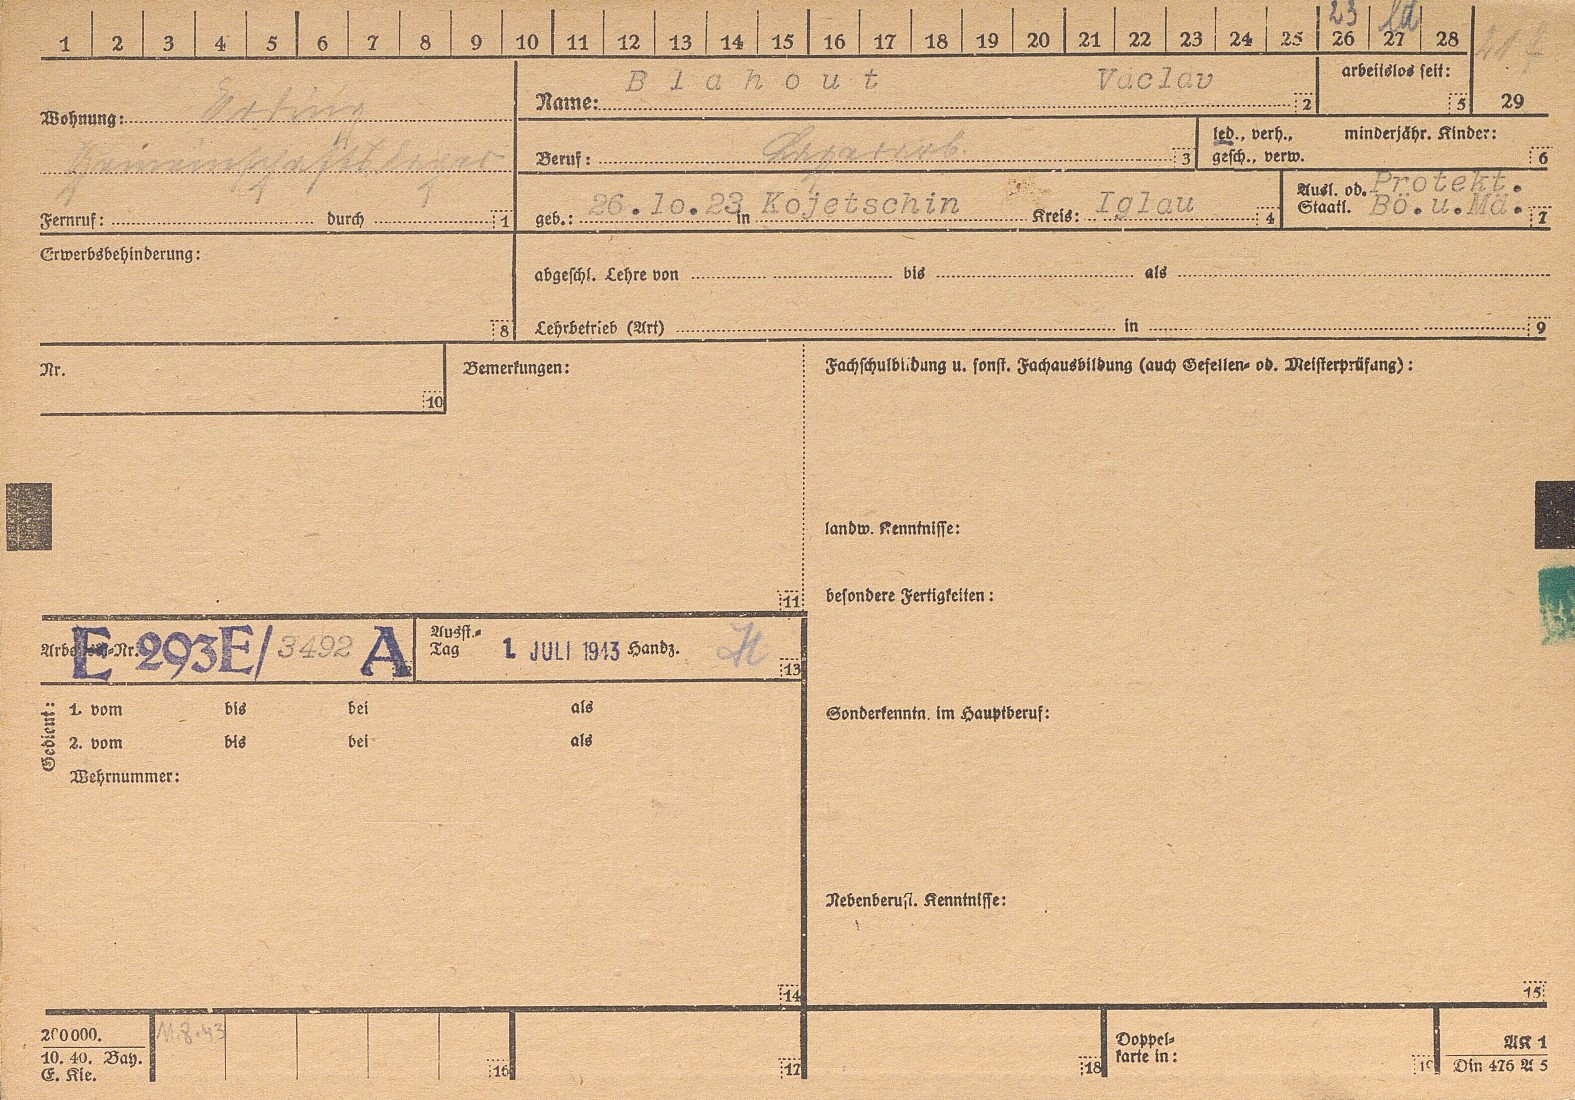 23 ld
1 2 3 4 5 6 7 8 9 10 11 12 13 14 15 16 17 18 19 20 21 22 23 24 25 26 27 28
29
Wohnung: Erding
Gemeinschaftslager
Fernruf: durch 1
Name: Blahout Vaclav 2
arbeitslos seit: 5
Beruf: 3
led., verh., minderjähr. Kinder:
gesch., verw. 6
geb.: 26.10.23 in Kojetschin Kreis: Iglau 4
Ausl. od. Protekt.
Staatl. Bö.u.Mä. 7
Erwerbsbehinderung:
8
abgeschl. Lehre von bis als
Lehrbetrieb (Art) in 9
Nr.
10
Bemerkungen:
11
Fachschulbildung u. sonst. Fachausbildung (auch Gesellen- od. Meisterprüfung):
landw. Kenntnisse:
besondere Fertigkeiten:
Sonderkenntn. im Hauptberuf:
Nebenberufl. Kenntnisse:
15
E 293E/3492 A 12
Ausst.-
Tag 1 JULI 1943 Handz. 13
Gedient:
1. vom bis bei als
2. vom bis bei als
Wehrnummer:
14
200000.
10. 40. Bay.
E. Kie.
11.8.43
16
17
18
Doppel-
karte in:
19
AK 1
Din 476 A 5